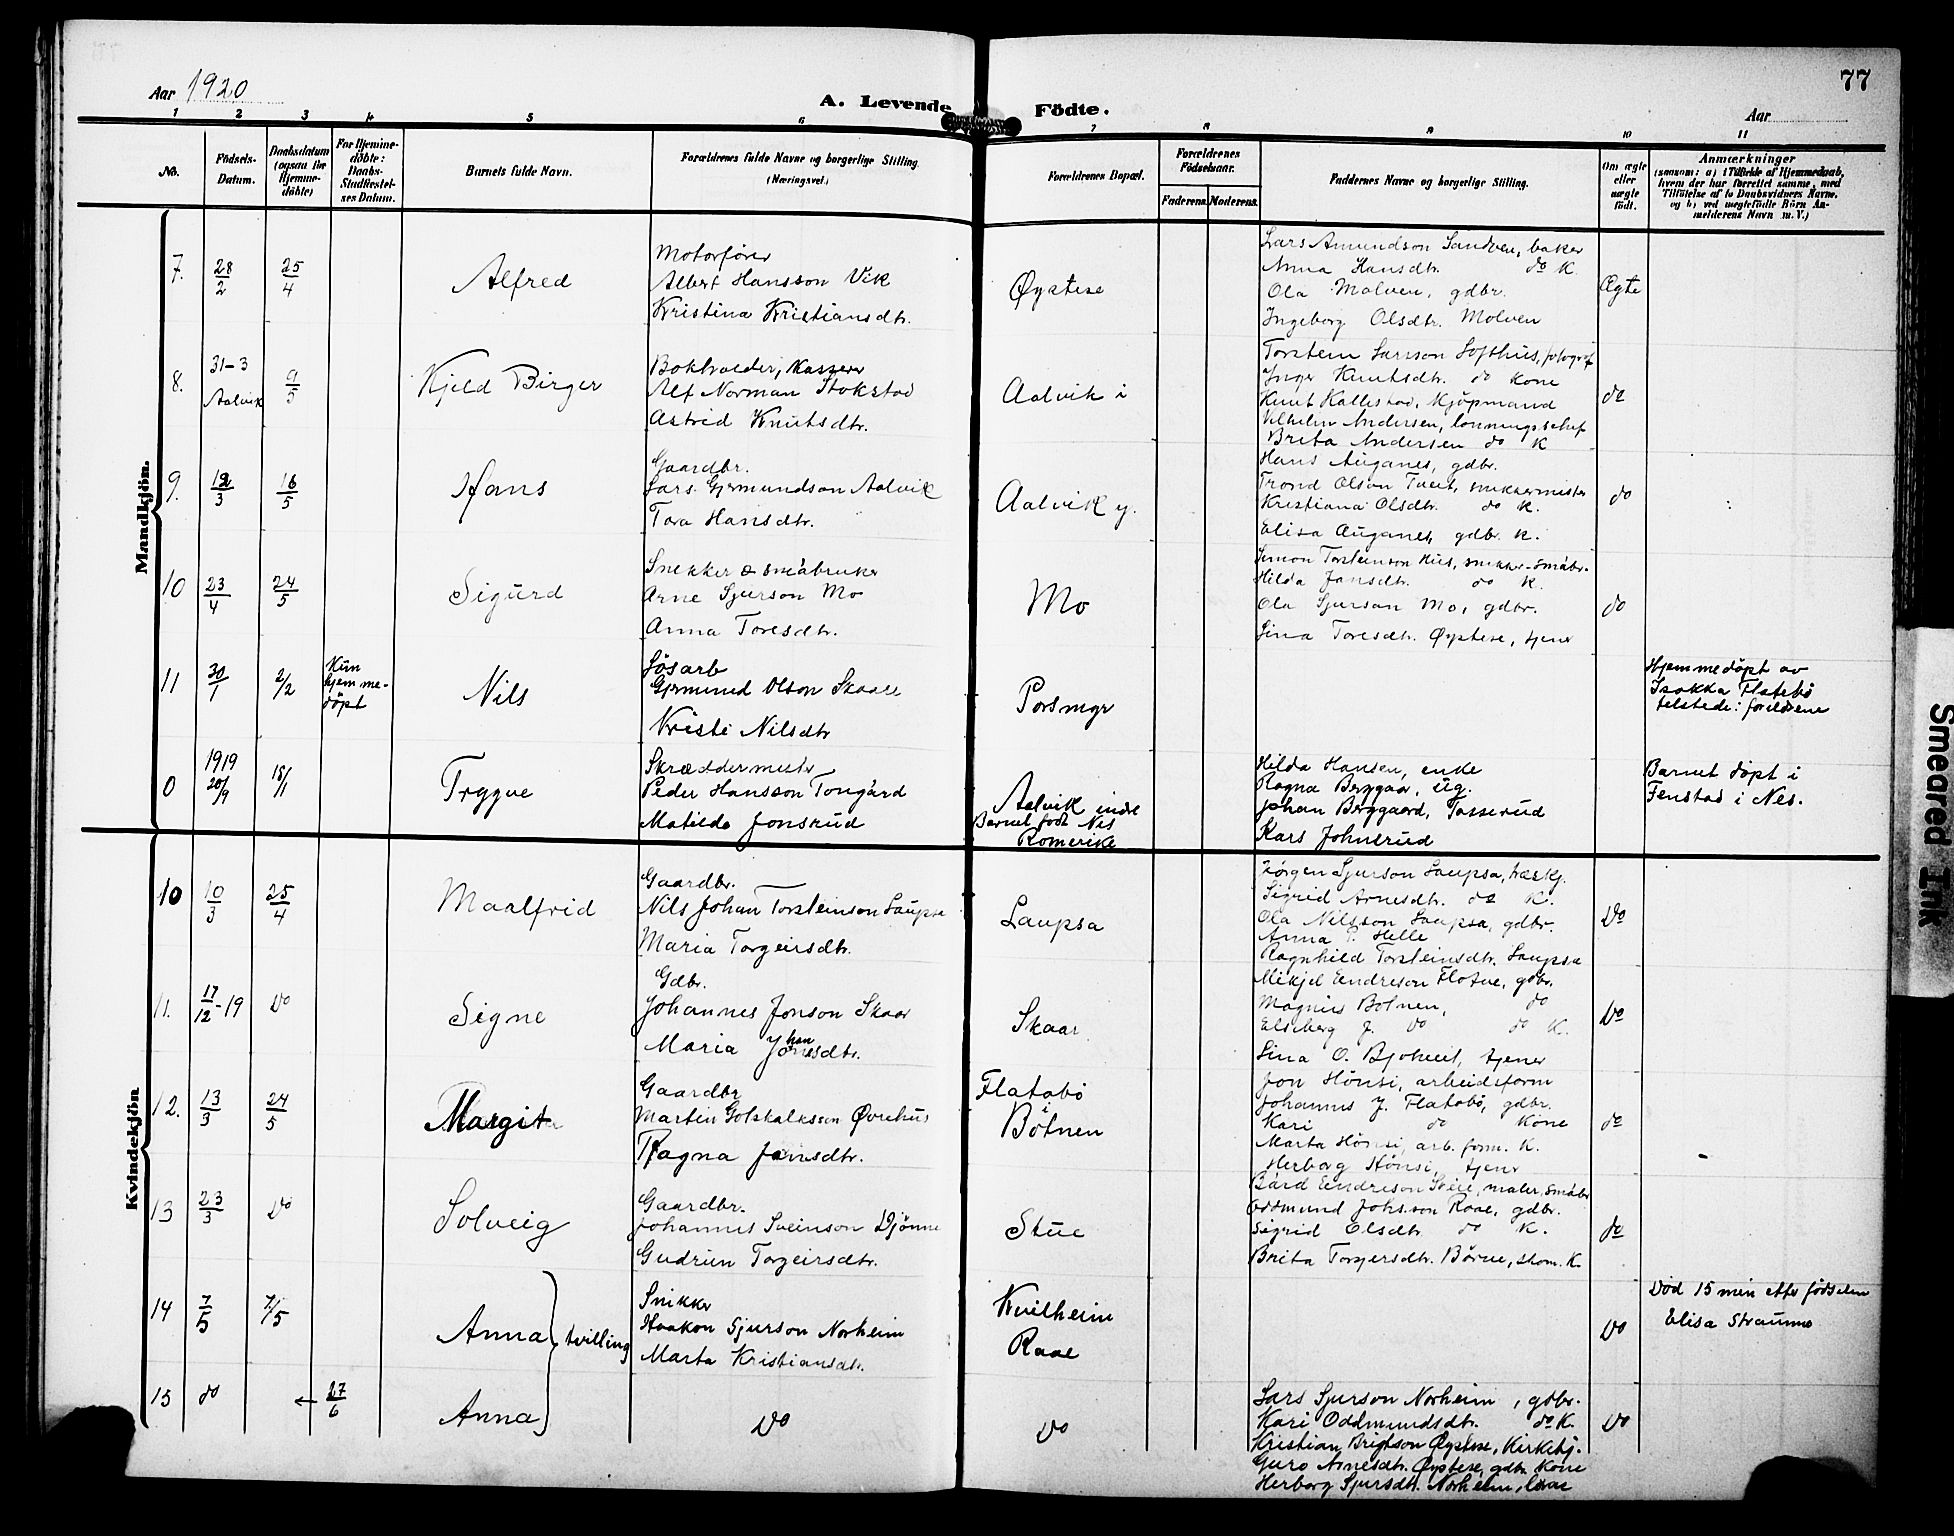 Aar 1920
A. Levende Födte.
77
Aar
1 2 3 4 5 6 7 8 9 10 11
No.
Födsels-Datum.
Daabsdatum (ogsaa for Hjemmedöbte)
For Hjemmedöbte: Daabs-Stadfæstelses Datum.
Barnets fulde Navn.
Forældrenes fulde Navne og borgerlige Stilling.
(Næringsvei.)
Forældrenes Bopæl.
Forældrenes Födselsaar.
Faderens. Moderens.
Faddernes Navne og borgerlige Stilling.
Om ægte eller uægte födt.
Anmærkninger
(saasom: a) i Tilfælde af Hjemmedaab,
hvem der har forrettet samme, med
Tilföielse af to Daabsvidners Navne.
og b) ved uægtefödte Börn An-
melderens Navn m. V.)
Mandkjön.
7. 28/2 25/4
Alfred
Motorfører
Albert Hansson Vik
Kristina Kristiansdtr.
Øystese
Lars Amundson Sandven, baker
Anna Hansdtr. do K.
Ola Molven, gdbr.
Ingeborg Olsdtr. Molven
Ægte
8. 31-3 Aalvik 9/5
Kjeld Birger
Bokholder, Kasserer
Alf Norman Stokstad
Astrid Knutsdtr.
Aalvik i
Torstein Larsson Lofthus, fotograf
Inger Knutsdtr. do Kone
Knut Kallestad, Kjøpmand
Vilhelm Andersen, lønningschef
Brita Andersen do K
do
9. 12/3 16/5
Hans
Gaardbr.
Lars Gjermundson Aalvik
Tora Hansdtr.
Aalvik y.
Hans Auganes, gdbr.
Trond Olson Tveit, snikkermister
Kristiana Olsdtr. do K.
Elisa Auganes, gdbr. K.
do
10 23/4 24/5
Sigurd
Snekker & småbruker
Arne Sjurson Mo
Anna Toresdtr.
Mo
Simon Torsteinson Hus, snikker-småbr.
Hilda Jansdtr. do K.
Ola Sjurson Mo, gdbr.
Lina Toresdtr. Øystese, tjener
do
11 30/1 2/2
Kun hjemme-døpt
Nils
Løsarb
Gjermund Olson Skaar
Kristi Nilsdtr
Porsmyr
Hjemmedøpt av
Isakka Flatebø
tilstede: foreldrene
0 1919 20/9 18/1
Trygve
Skræddermester
Peder Hansson Tongård
Matilde Jonsrud
Aalvik indre
Barnet født Nes
Romerike
Hilda Hansen, enke
Ragna Berggaar, ug.
Johan Berggaard, Tasserud
Kars Johnsrud
Barnet døpt i
Fenstad i Nes.
Kvindekjön
10 10/3 25/4
Maalfrid
Gaardbr.
Nils Johan Torsteinson Laupsa
Maria Torgeirsdtr.
Laupsa
Jørgen Sjurson Laupsa,
Sigrid Arnesdtr. do K.
Ola Nilsson Laupsa, gdbr.
Anna P. Helle
Ragnhild Torsteinsdtr. Laupsa
Do
11. 17/12-19 Do
Signe
Gdbr.
Johannes Jonson Skaar
Maria Johannesdtr.
Skaar
Mikjel Eendreson Flotve, gdbr.
Magnus Botnen, do
Elseberg J. do do K.
Lina O. Bjotveit, tjener
Do
12. 13/3 24/5
Margit
Gaardbr
Martin Gotskalksson Øvrehus
Ragna Jonsdtr.
Flatabö
i
Botnen
Jon Hönsi, arbeidsform
Johannes J. Flatabö, gdbr.
Kari do Kone
Marta Hönsi, arb. form. K.
Herborg Hönsi, tjener
do
13 23/3 Do
Solveig
Gaardbr.
Johannes Sveinson Djønne
Gudrun Torgeirsdtr.
Stue
Bård Eendreson Steie, maler, småbr
Oddmund Johsson Raae, gdbr.
Sigrid Olsdtr do K.
Brita Torgersdtr. Börve, skom. K.
do
14 7/5 7/5
Anna tvilling
Snikker
Haakon Sjurson Norheim
Marta Kristiansdtr.
Kvilheim
Raae
Do
Død 15 min etter fødselen
Elisa Straume
15 do ← 27/6
Anna
Do
Do
Lars Sjurson Norheim, gdbr.
Kari Oddmundsdtr. do K.
Kristian Brigtson Øystese, Kirketj.
Guro Arnesdtr. Øystese, gdbr. Kone
Herborg Sjursdtr. Norheim,
Do
Smeared Ink